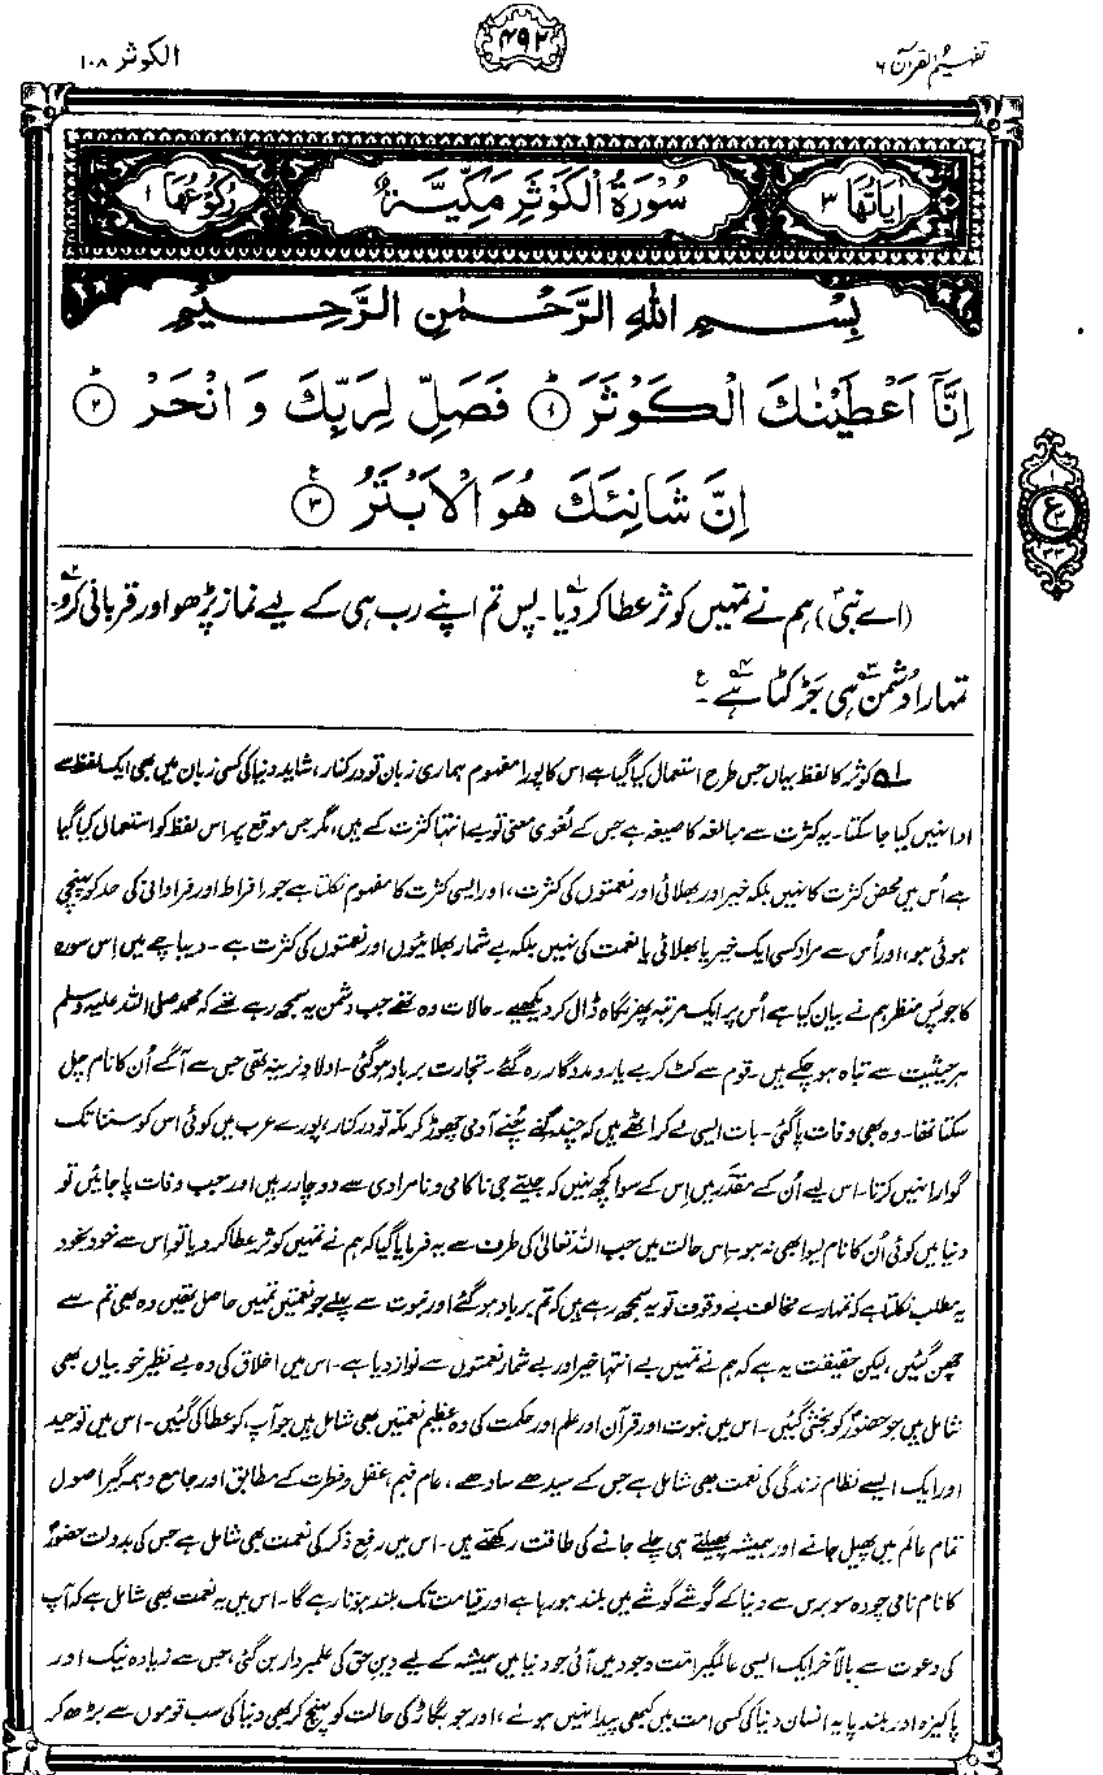 تفہیم القرآن ۶
۴۹۲
الکوثر ۱۰۸
اٰیَاتُهَا ۳
سُوْرَةُ الْكَوْثَرِ مَكِّيَّةٌ
رُكُوْعُهَا ۱
بِسْمِ اللهِ الرَّحْمٰنِ الرَّحِيْمِ
اِنَّاۤ اَعْطَيْنٰكَ الْكَوْثَرَ ؕ ۱ فَصَلِّ لِرَبِّكَ وَ انْحَرْ ؕ ۲
اِنَّ شَانِئَكَ هُوَ الْاَبْتَرُ ۳ ع
۱
ع
۳
۳۳
(اے نبیؐ) ہم نے تمہیں کوثر عطا کر دیا۱۔ پس تم اپنے رب ہی کے لیے نماز پڑھو اور قربانی کرو۲۔
تمہارا دشمن۳ ہی جَڑ کٹا ہے۴۔ ع
۱ کوثر کا لفظ یہاں جس طرح استعمال کیا گیا ہے اس کا پورا مفہوم ہماری زبان تو درکنار، شاید دنیا کی کسی زبان میں بھی ایک لفظ سے
ادا نہیں کیا جا سکتا۔ یہ کثرت سے مبالغہ کا صیغہ ہے جس کے لُغوی معنی تو بے انتہا کثرت کے ہیں، مگر جس موقع پر اس لفظ کو استعمال کیا گیا
ہے اُس میں محض کثرت کا نہیں بلکہ خیر اور بھلائی اور نعمتوں کی کثرت، اور ایسی کثرت کا مفہوم نکلتا ہے جو افراط اور فراوانی کی حد کو پہنچی
ہوئی ہو، اور اُس سے مراد کسی ایک خیر یا بھلائی یا نعمت کی نہیں بلکہ بے شمار بھلائیوں اور نعمتوں کی کثرت ہے۔ دیباچے میں اِس سورہ
کا جو پس منظر ہم نے بیان کیا ہے اُس پر ایک مرتبہ پھر نگاہ ڈال کر دیکھیے۔ حالات وہ تھے جب دشمن یہ سمجھ رہے تھے کہ محمد صلی اللہ علیہ وسلم
ہر حیثیت سے تباہ ہو چکے ہیں۔ قوم سے کٹ کر بے یار و مددگار رہ گئے۔ تجارت برباد ہو گئی۔ اولادِ نرینہ تھی جس سے آگے اُن کا نام چل
سکتا تھا۔ وہ بھی وفات پا گئی۔ بات ایسی لے کر اٹھے ہیں کہ چند گِنے چُنے آدمی چھوڑ کر مکہ تو درکنار، پورے عرب میں کوئی اس کو سننا تک
گوارا نہیں کرتا۔ اس لیے اُن کے مقدَّر میں اِس کے سوا کچھ نہیں کہ جیتے جی ناکامی و نامرادی سے دوچار رہیں اور جب وفات پا جائیں تو
دنیا میں کوئی اُن کا نام لیوا بھی نہ ہو۔ اِس حالت میں جب اللہ تعالیٰ کی طرف سے یہ فرمایا گیا کہ ہم نے تمہیں کوثر عطا کر دیا تو اِس سے خود بخود
یہ مطلب نکلتا ہے کہ تمہارے مخالف بے وقوف تو یہ سمجھ رہے ہیں کہ تم برباد ہو گئے اور نبوت سے پہلے جو نعمتیں تمہیں حاصل تھیں وہ بھی تم سے
چھن گئیں، لیکن حقیقت یہ ہے کہ ہم نے تمہیں بے انتہا خیر اور بے شمار نعمتوں سے نواز دیا ہے۔ اس میں اخلاق کی وہ بے نظیر خوبیاں بھی
شامل ہیں جو حضورؐ کو بخشی گئیں۔ اس میں نبوت اور قرآن اور علم اور حکمت کی وہ عظیم نعمتیں بھی شامل ہیں جو آپ کو عطا کی گئیں۔ اس میں توحید
اور ایک ایسے نظام زندگی کی نعمت بھی شامل ہے جس کے سیدھے سادھے، عام فہم، عقل و فطرت کے مطابق اور جامع و ہمہ گیر اصول
تمام عالَم میں پھیل جانے اور ہمیشہ پھیلتے ہی چلے جانے کی طاقت رکھتے ہیں۔ اس میں رفعِ ذکر کی نعمت بھی شامل ہے جس کی بدولت حضورؐ
کا نام نامی چودہ سو برس سے دنیا کے گوشے گوشے میں بلند ہو رہا ہے اور قیامت تک بلند ہوتا رہے گا۔ اس میں یہ نعمت بھی شامل ہے کہ آپ
کی دعوت سے بالآخر ایک ایسی عالمگیر امّت وجود میں آئی جو دنیا میں ہمیشہ کے لیے دین حق کی علمبردار بن گئی، جس سے زیادہ نیک اور
پاکیزہ اور بلند پایہ انسان دنیا کی کسی امت میں کبھی پیدا نہیں ہوئے، اور جو بگاڑ کی حالت کو پہنچ کر بھی دنیا کی سب قوموں سے بڑھ کر